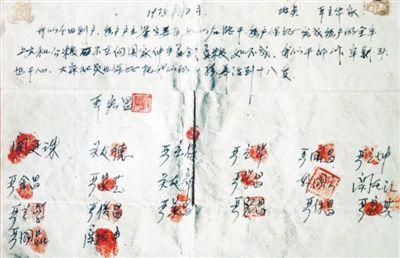 1978年12月 地点 严立华家
我们分田到户,每户户主签字盖章,如以后能干,每户保证完成每户的全年
上交和公粮。不在向国家伸手要钱要粮。如不成,我们干部作牢刹
头也干心,大家社员也保证把我们的小孩养活到十八岁
严宏昌
关延珠 关友德 严立符 严立华 严国昌 严立坤
严金昌 严家芝 关友章 严学昌 韩国云 关友江
严立学 严俊昌 严美昌 严宏昌 严付昌 严家其
严国品 关友申